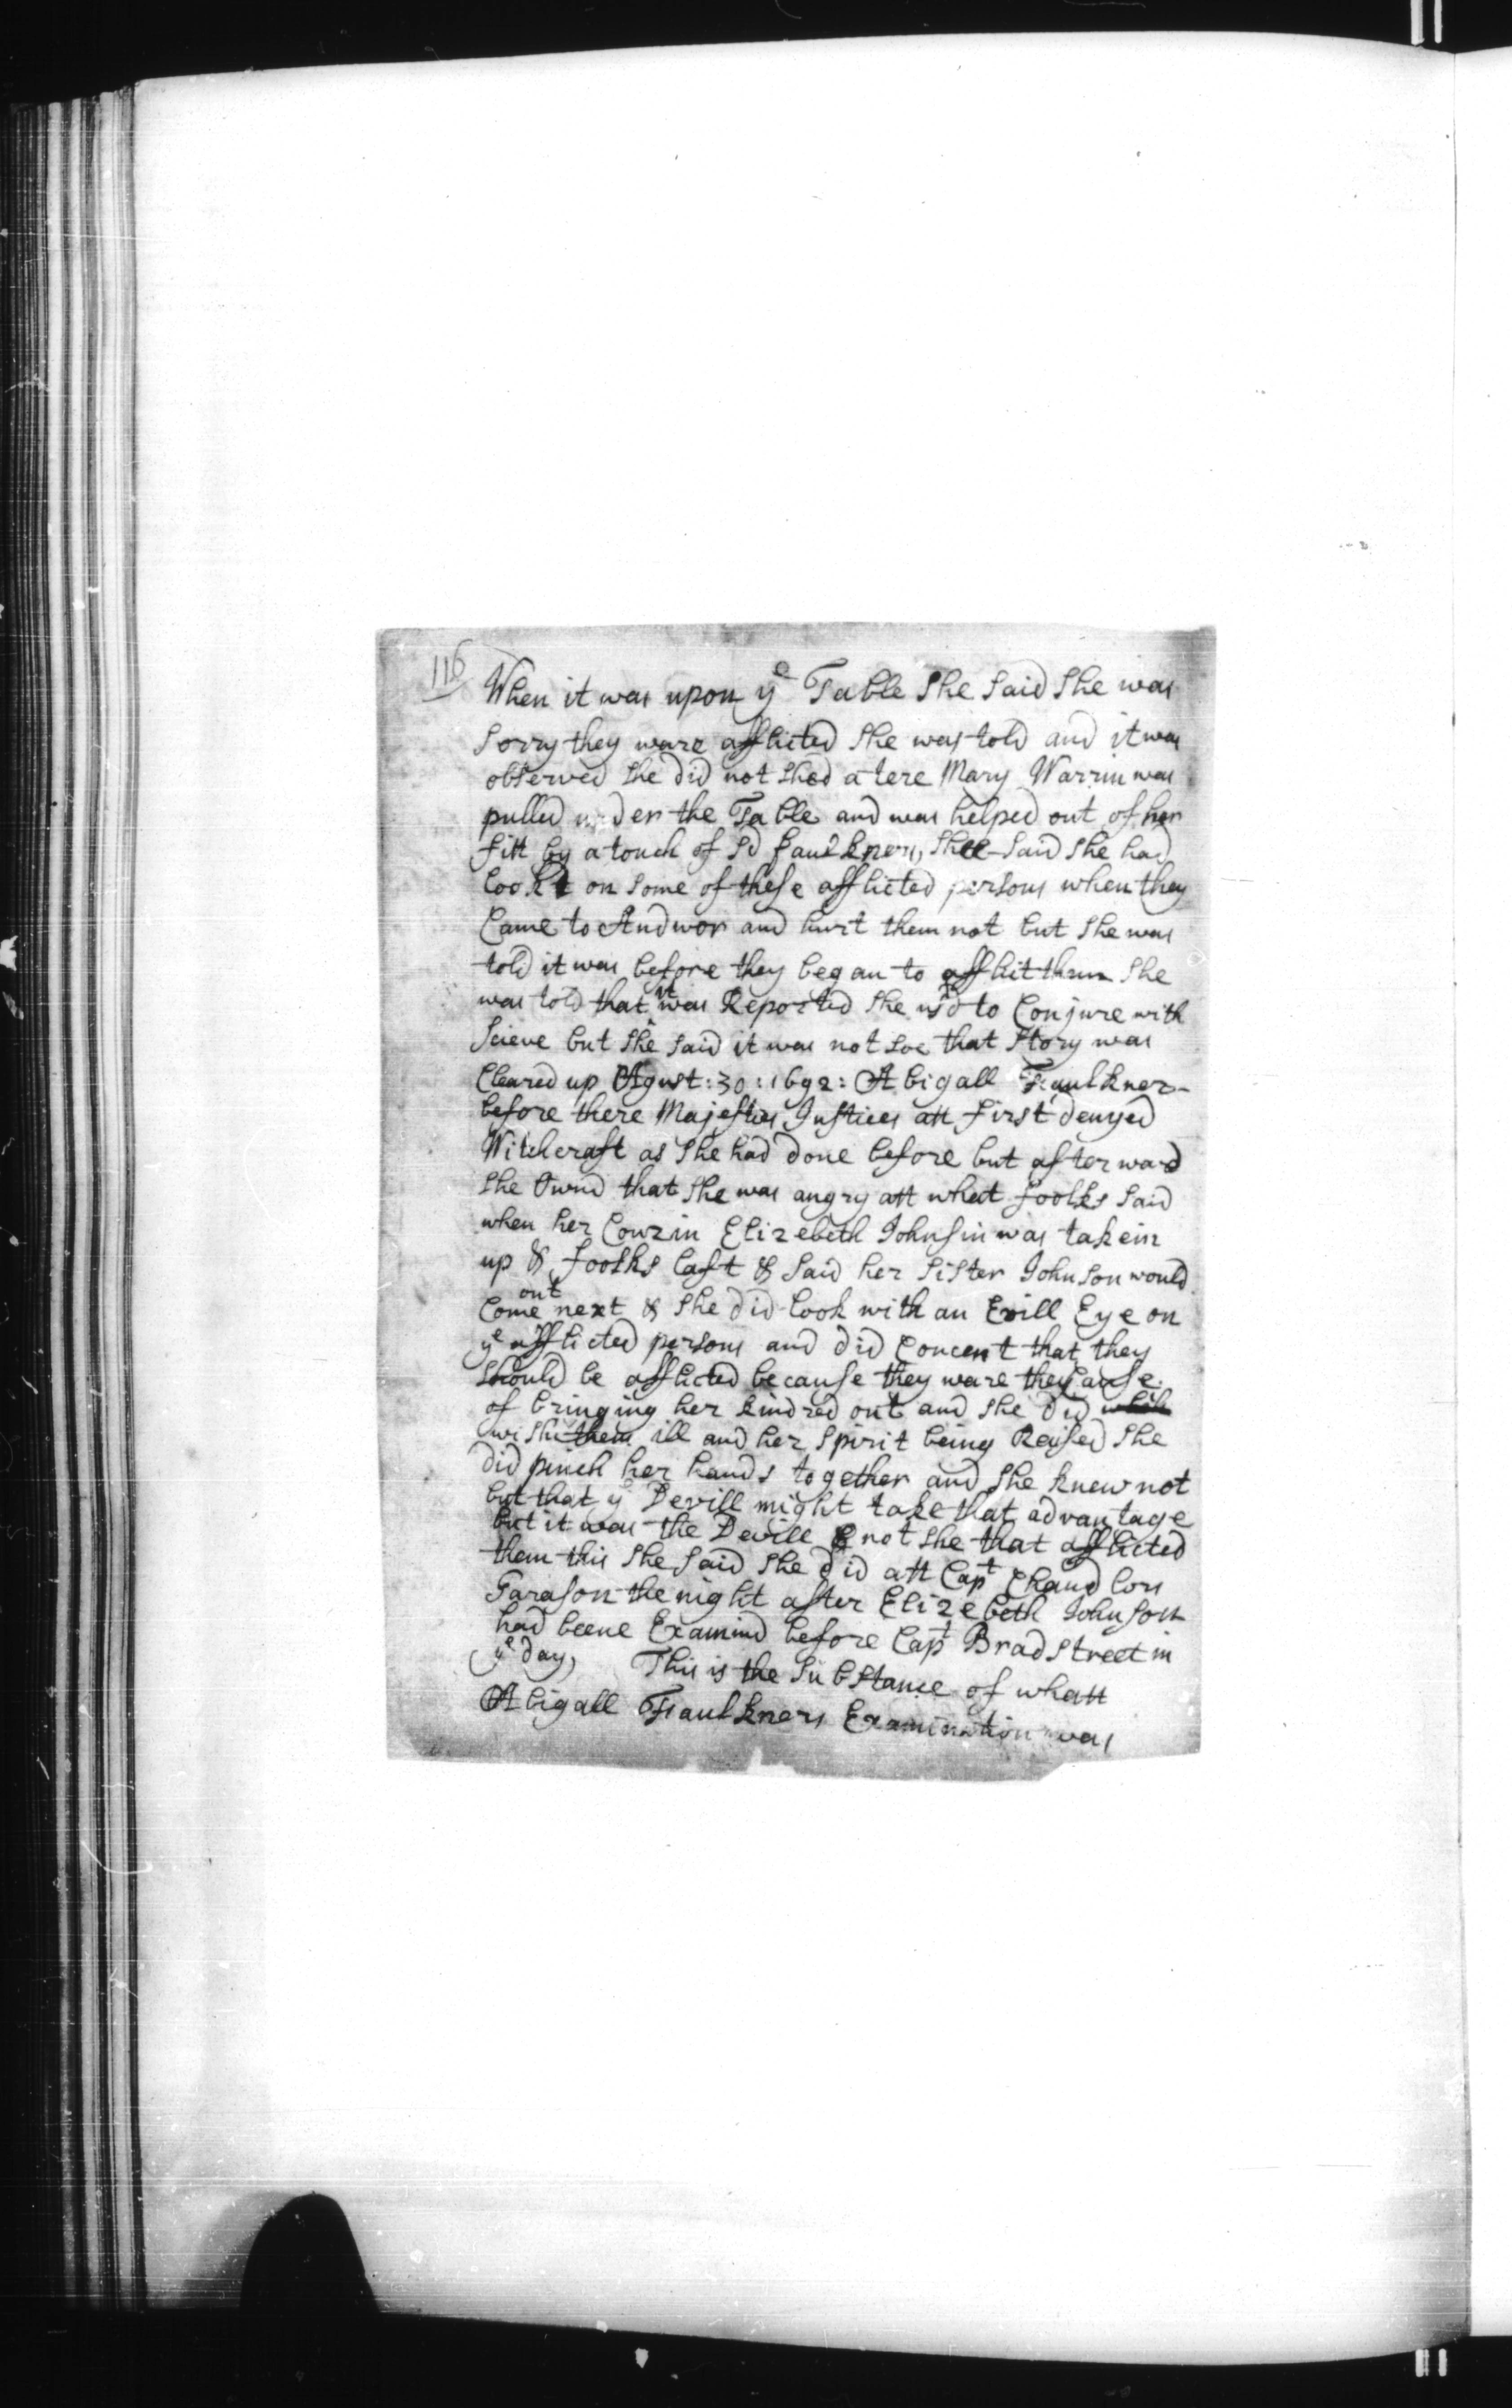 116
When it was upon ye Table She Said She was
Sorry they ware afflicted She was told and it was
observed she did not shed a tere Mary Warrin was
pulled under the Table and was helped out of her
fitt by a touch of Sd faulkners, Shee Said She had
look't on some of these afflicted persons when they
Came to Andwor and hurt them not but She was
told it was before they began to afflict them She
was told that it was Reported She us'd to Conjure with
Scieve but she said it was not soe that Story was
Cleared up Agust: 30: 1692: Abigall Faulkner-
before there Majesties Justices att first denyed
Witchcraft as She had done before but afterward
She Own'd that She was angry att what foolks Said
when her Couzin Elizebeth Johnsin was takein
up & foolks laft & Said her Sister Johnson would
Come out next & She did look with an Evill Eye on
ye afflicted persons and did Concent that they
Should be afflicted because they ware they Cause
of bringing her kindred out and she did
wish them ill and her Spirit being Raised She
did pinch her hands together and She knew not
but that ye Devill might take that advantage
but it was the Devill & not she that afflicted
them this She Said She did att Capt Chandlors
Garason the night after Elizebeth Johnson
had beene Examind before Capt Bradstreet in
ye day, This is the Substance of whatt
Abigall Faulkners Examination was